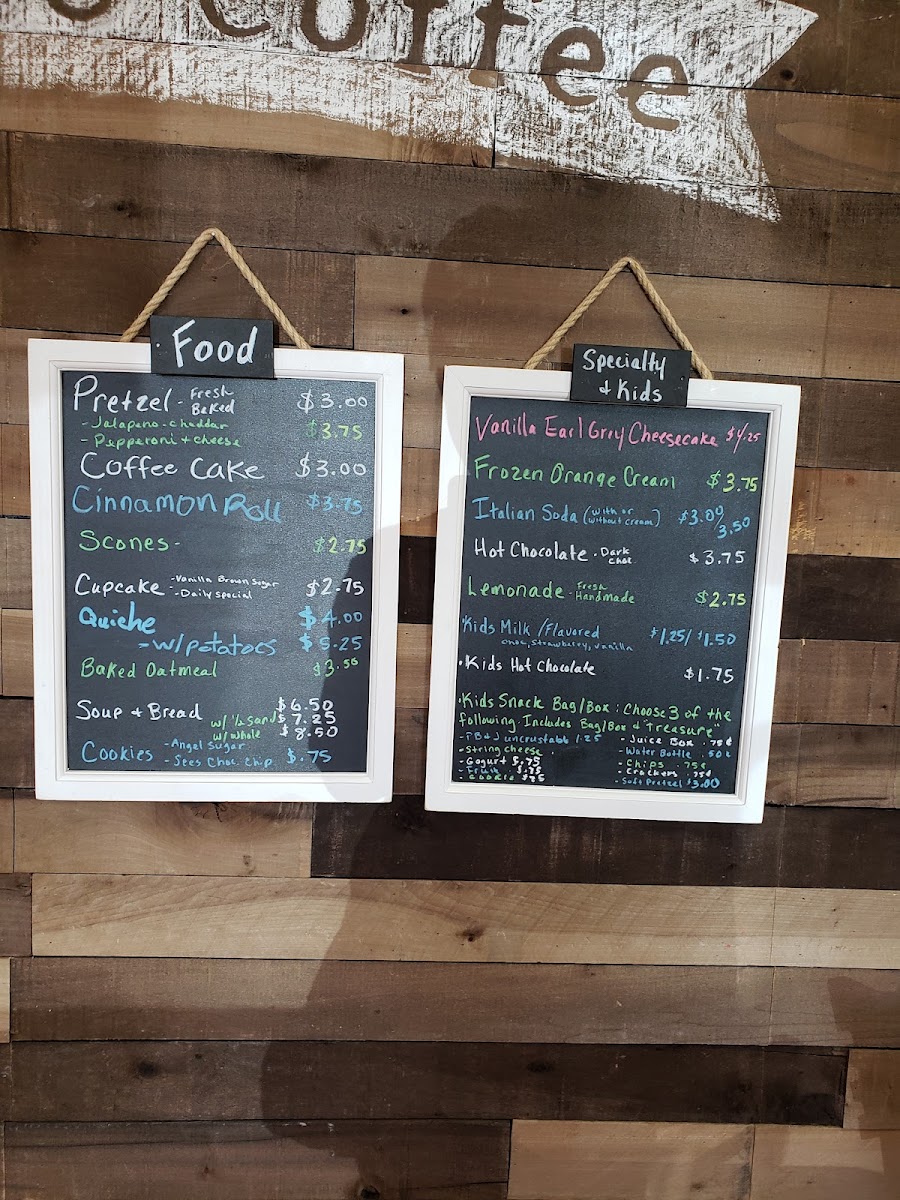 Coffee
Food
Pretzel - Fresh Baked $3.00
- Jalapeno-cheddar $3.75
- Pepperoni + cheese
Coffee Cake $3.00
Cinnamon Roll $3.75
Scones - $2.75
Cupcake - Vanilla Brown Sugar $2.75
- Daily special
Quiche $4.00
- w/ potatoes $5.25
Baked Oatmeal $3.50
Soup + Bread $6.50
w/ ½ Sand $7.25
w/ whole $8.50
Cookies - Angel Sugar $.75
- Sees Choc. Chip.
Specialty
+ Kids
Vanilla Earl Grey Cheesecake $4.25
Frozen Orange Cream $3.75
Italian Soda (with or without cream) $3.00/3.50
Hot Chocolate - Dark Choc. $3.75
Lemonade - Fresh Handmade $2.75
Kids Milk / Flavored $1.25/$1.50
choc, strawberry, vanilla
• Kids Hot Chocolate $1.75
• Kids Snack Bag/Box: Choose 3 of the
following. Includes Bag/Box + "Treasure"
- PB+J uncrustable 1.25 - Juice Box .75¢
- string cheese - Water Bottle .50¢
- Gogurt $.75 - Chips .75¢
- Fruit $.75 - Crackers .75¢
- Cookie $.75 - Soft Pretzel $3.00